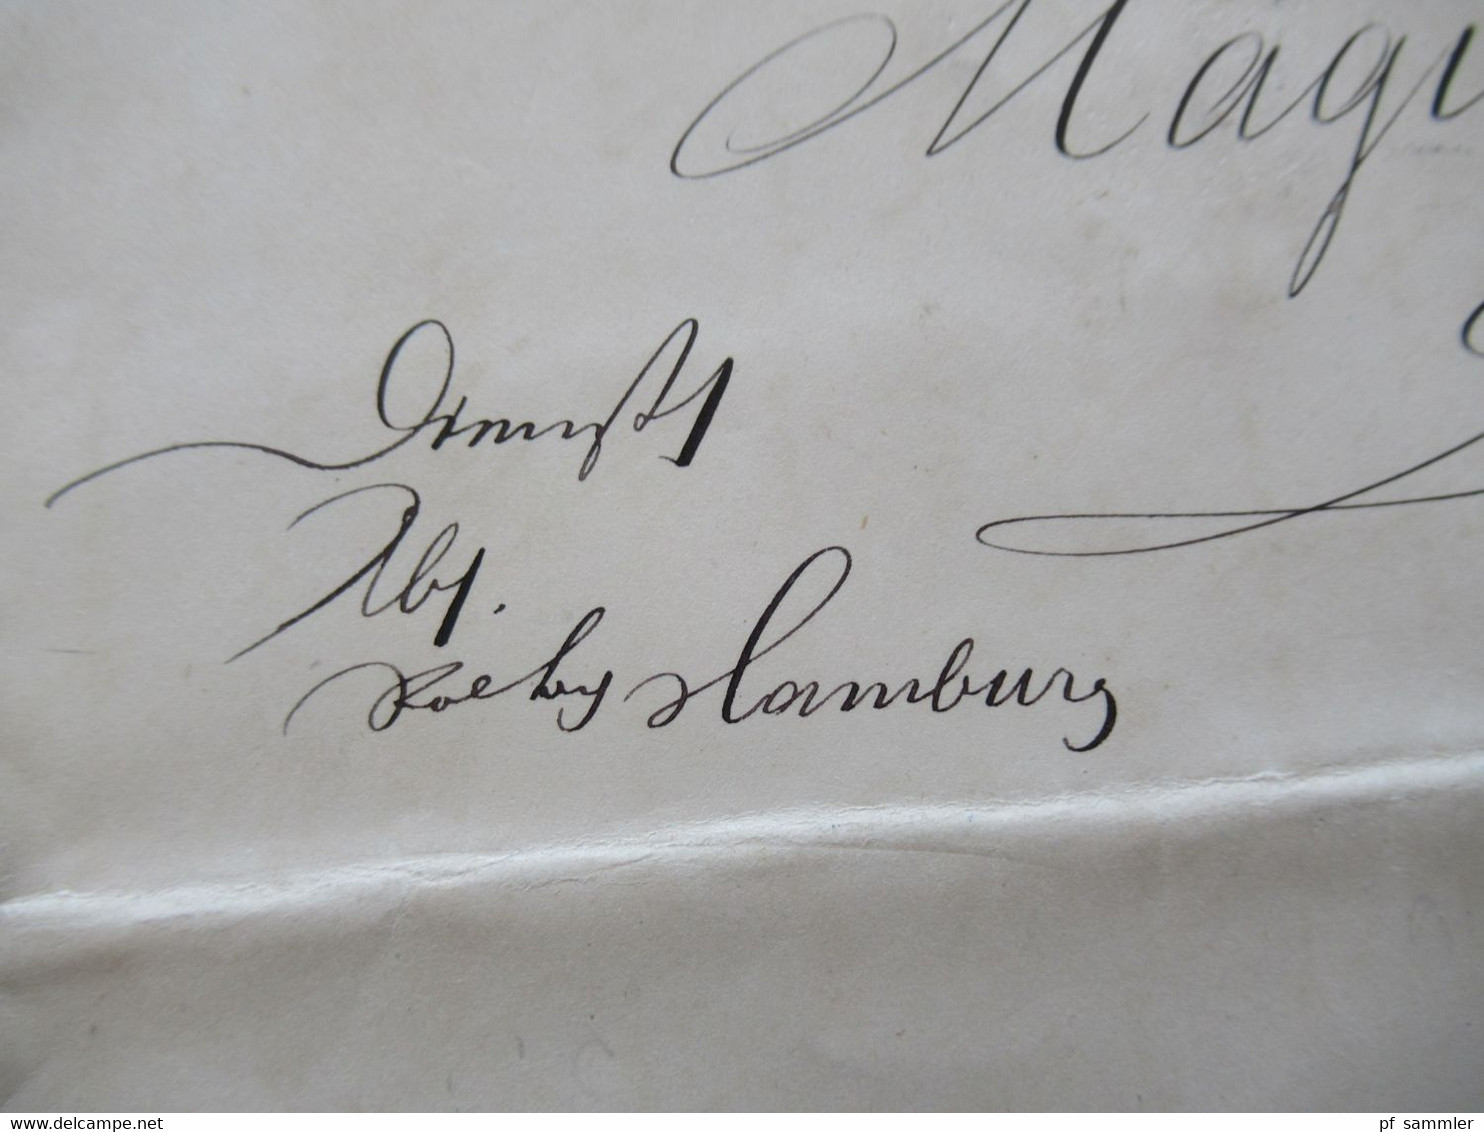 Mag
Dienst
Abs.
Hamburg
www.delcampe.net
pf_sammler